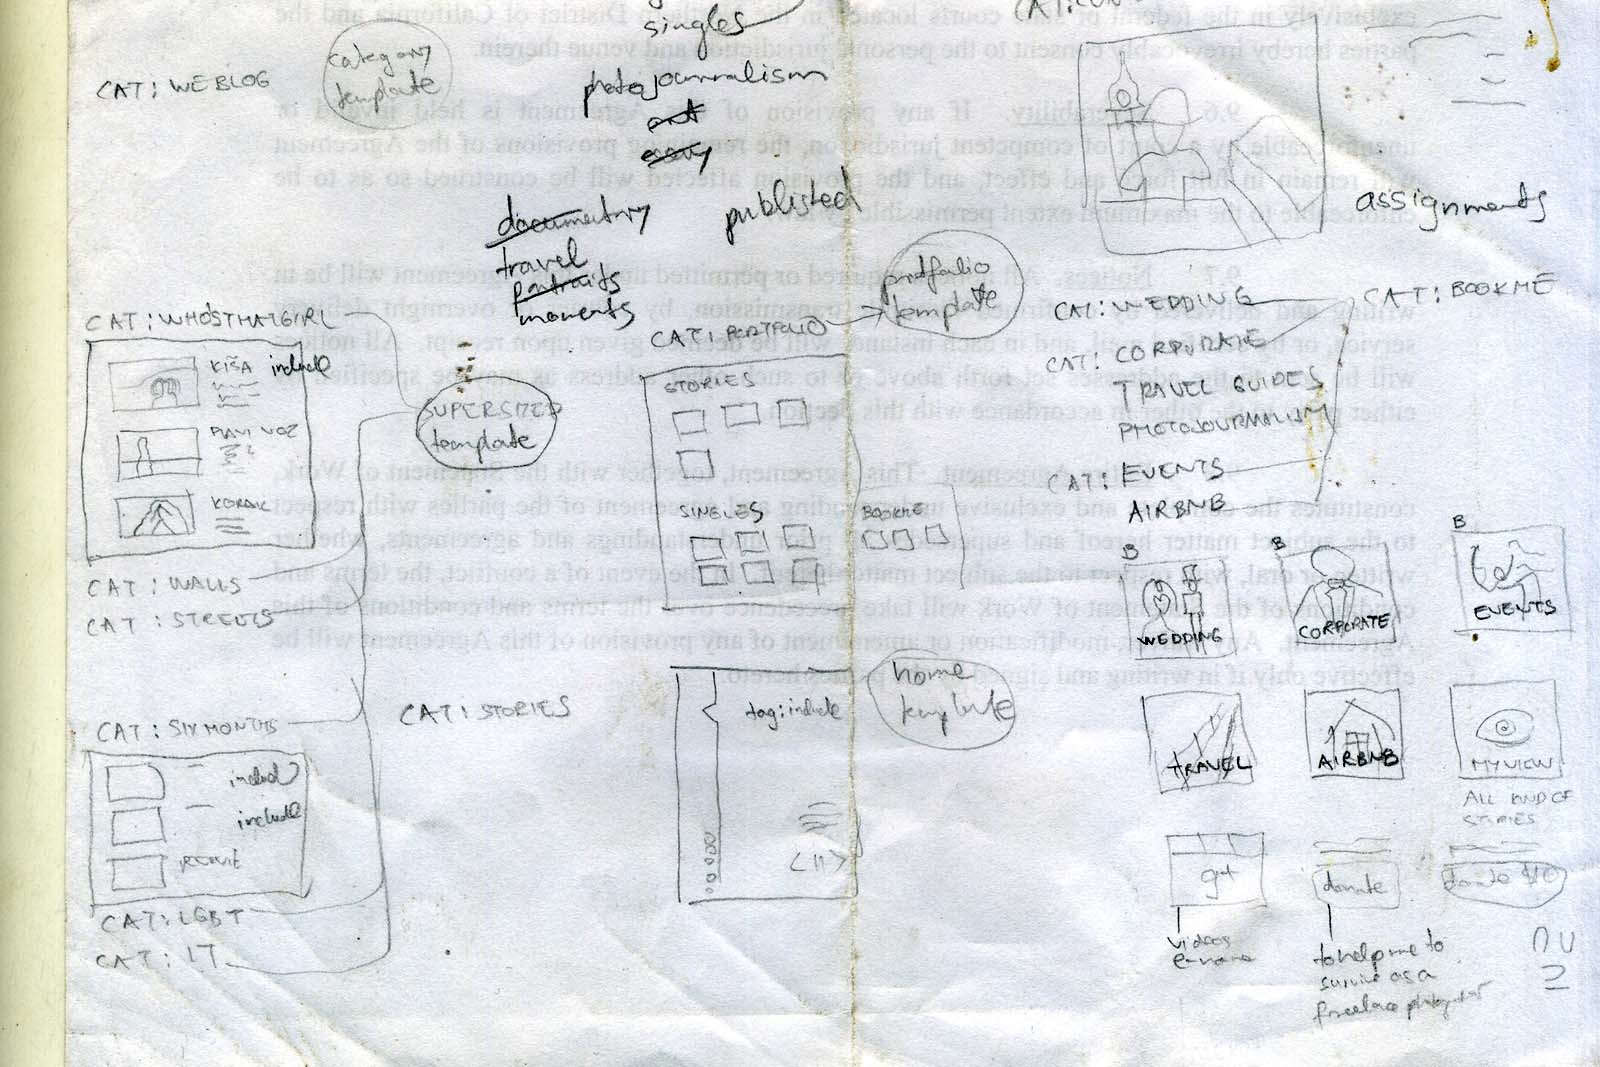 singles
photojournalism
published
documentary
travel
portraits
moments
CAT: WEBLOG
category
template
assignments
portfolio
template
CAT: WEDDING
CAT: BOOKME
CAT: CORPORATE
TRAVEL GUIDES
PHOTOJOURNALISM
CAT: EVENTS
AIRBNB
CAT: WHOSTHATGIRL
KIŠA include
PLAVI VOZ
KORAK
SUPERSIZED
template
CAT: WALLS
CAT: STREETS
CAT: PORTFOLIO
STORIES
SINGLES
BOOKME
B
WEDDING
B
CORPORATE
B
EVENTS
TRAVEL
AIRBNB
MYVIEW
ALL KIND OF
STORIES
CAT: SIX MONTHS
include
include
CAT: LGBT
CAT: IT
CAT: STORIES
tag: include
home
template
< || >
videos
donate
to help me to
survive as a
freelance photographer
donate $10
exclusively in the federal or state courts located in the District of California and the
parties hereby irrevocably consent to the personal jurisdiction and venue therein.
9.6. Severability. If any provision of this Agreement is held invalid or
unenforceable by a court of competent jurisdiction, the remaining provisions of the Agreement
will remain in full force and effect, and the provision affected will be construed so as to be
enforceable to the maximum extent permissible by law.
9.7. Notices. All notices required or permitted under this Agreement will be in
writing and delivered by confirmed facsimile transmission, by courier or overnight delivery
service, or by certified mail, and in each instance will be deemed given upon receipt. All notices
will be sent to the addresses set forth above or to such other address as may be specified by
either party to the other in accordance with this Section.
Entire Agreement. This Agreement, together with the Statement of Work,
constitutes the complete and exclusive understanding and agreement of the parties with respect
to the subject matter hereof and supersedes all prior understandings and agreements, whether
written or oral, with respect to the subject matter hereof. In the event of a conflict, the terms and
conditions of the Statement of Work will take precedence over the terms and conditions of this
Agreement. Any waiver, modification or amendment of any provision of this Agreement will be
effective only if in writing and signed by the parties hereto.